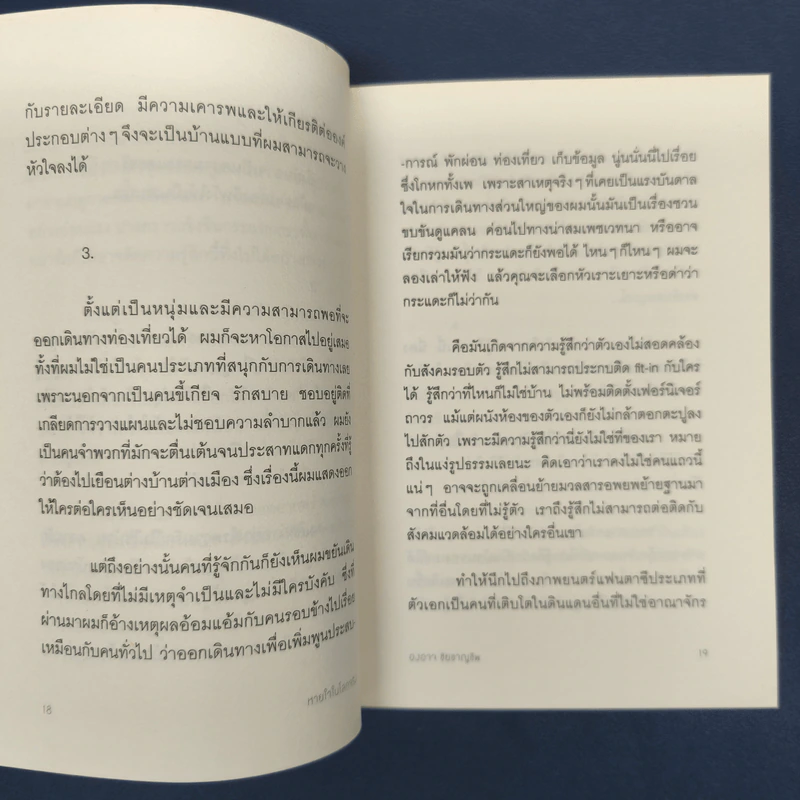 กับรายละเอียด มีความเคารพและให้เกียรติต่อองค์
ประกอบต่างๆ จึงจะเป็นบ้านแบบที่ผมสามารถจะวาง
หัวใจลงได้
3.
ตั้งแต่เป็นหนุ่มและมีความสามารถพอที่จะ
ออกเดินทางท่องเที่ยวได้ ผมก็จะหาโอกาสไปอยู่เสมอ
ทั้งที่ผมไม่ใช่เป็นคนประเภทที่สนุกกับการเดินทางเลย
เพราะนอกจากเป็นคนขี้เกียจ รักสบาย ชอบอยู่ติดที่
เกลียดการวางแผนและไม่ชอบความลำบากแล้ว ผมยัง
เป็นคนจำพวกที่มักจะตื่นเต้นจนประสาทแดกทุกครั้งที่รู้
ว่าต้องไปเยือนต่างบ้านต่างเมือง ซึ่งเรื่องนี้ผมแสดงออก
ให้ใครต่อใครเห็นอย่างชัดเจนเสมอ
แต่ถึงอย่างนั้นคนที่รู้จักกันก็ยังเห็นผมขยันเดิน
ทางไกลโดยที่ไม่มีเหตุจำเป็นและไม่มีใครบังคับ ซึ่งที่
ผ่านมาผมก็อ้างเหตุผลอ้อมแอ้มกับคนรอบข้างไปเรื่อย
เหมือนกับคนทั่วไป ว่าออกเดินทางเพื่อเพิ่มพูนประสบ-
18
-การณ์ พักผ่อน ท่องเที่ยว เก็บข้อมูล นู่นนั่นนี่ไปเรื่อย
ซึ่งโกหกทั้งเพ เพราะสาเหตุจริงๆ ที่เคยเป็นแรงบันดาล
ใจในการเดินทางส่วนใหญ่ของผมนั้นมันเป็นเรื่องชวน
ขบขันดูแคลน ค่อนไปทางน่าสมเพชเวทนา หรืออาจ
เรียกรวมมันว่ากระแดะก็ยังพอได้ ไหนๆ ก็ไหนๆ ผมจะ
ลองเล่าให้ฟัง แล้วคุณจะเลือกหัวเราะเยาะหรือด่าว่า
กระแดะก็ไม่ว่ากัน
คือมันเกิดจากความรู้สึกว่าตัวเองไม่สอดคล้อง
กับสังคมรอบตัว รู้สึกไม่สามารถประกบติด fit-in กับใคร
ได้ รู้สึกว่าที่ไหนก็ไม่ใช่บ้าน ไม่พร้อมติดตั้งเฟอร์นิเจอร์
ถาวร แม้แต่ผนังห้องของตัวเองก็ยังไม่กล้าตอกตะปูลง
ไปสักตัว เพราะมีความรู้สึกว่านี่ยังไม่ใช่ที่ของเรา หมาย
ถึงในแง่รูปธรรมเลยนะ คิดเอาว่าเราคงไม่ใช่คนแถวนี้
แน่ๆ อาจจะถูกเคลื่อนย้ายมวลสารอพยพย้ายฐานมา
จากที่อื่นโดยที่ไม่รู้ตัว เราถึงรู้สึกไม่สามารถต่อติดกับ
สังคมแวดล้อมได้อย่างใครอื่นเขา
ทำให้นึกไปถึงภาพยนตร์แฟนตาซีประเภทที่
ตัวเอกเป็นคนที่เติบโตในดินแดนอื่นที่ไม่ใช่อาณาจักร
19